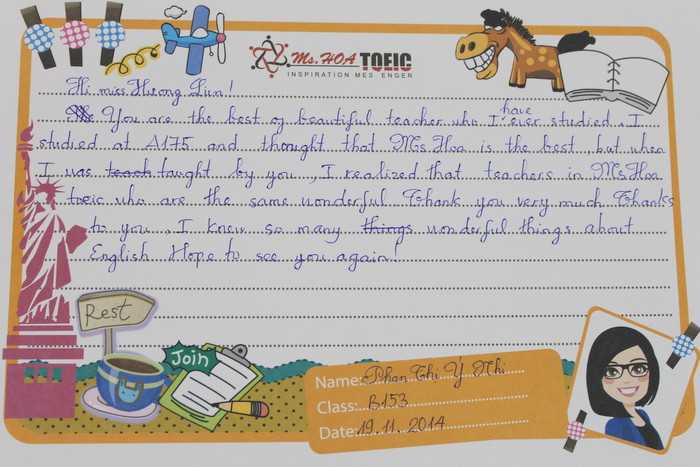 Ms. HOA TOEIC
INSPIRATION MES ENGER
Hi miss Hương Fiun!
You are the best of beautiful teacher who I have ever studied. I
studied at A175 and thought that Ms Hoa is the best but when
I was teach taught by you, I realized that teachers in Ms Hoa
toeic who are the same wonderful Thank you very much Thanks
to you, I knew so many things wonderful things about
English Hope to see you again!
Rest
Join
Name: Phan Thị Ý Nhi
Class: B153
Date: 19.11.2014